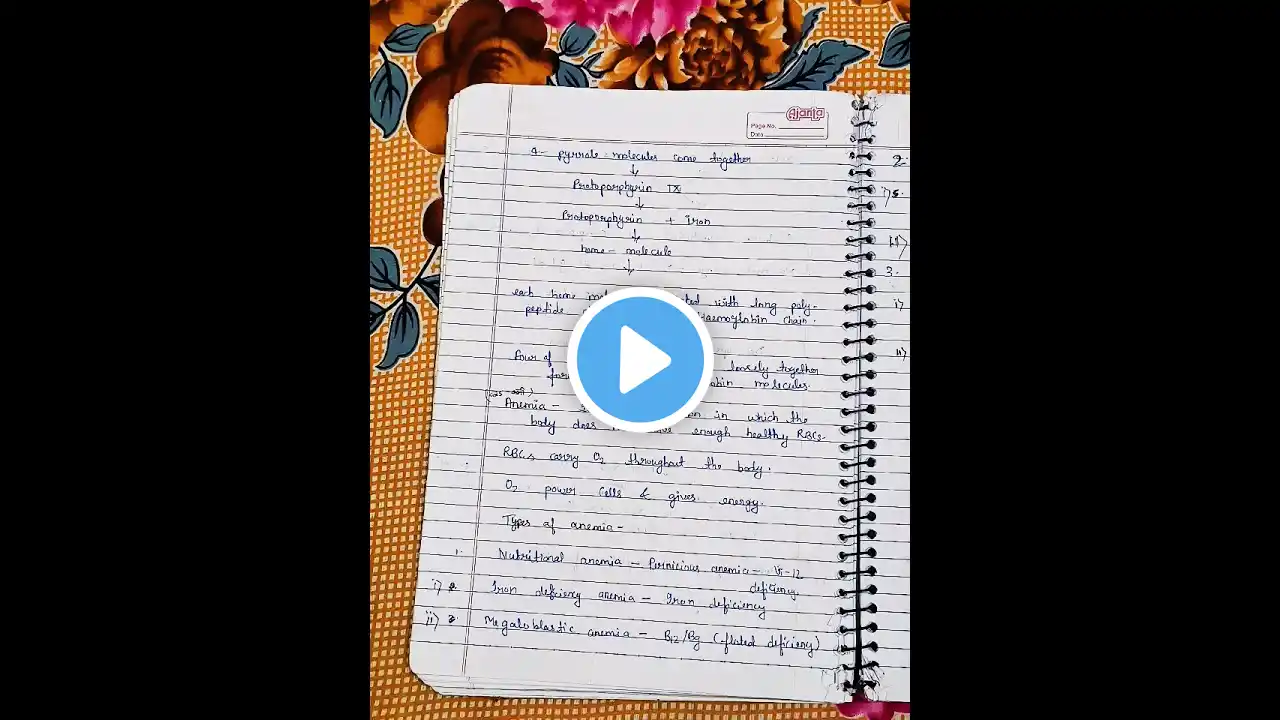 Ajanta
Page No.
Date
4- pyrrole molecules come together
↓
Protoporphyrin IX
↓
Protoporphyrin + Iron
↓
heme - molecule
↓
each heme with long poly-
peptide Haemoglobin chain.
four of loosely together
molecules.
Anemia in which the
body does enough healthy RBCs.
RBCs carry O2 throughout the body.
O2 power cells & gives energy.
Types of anemia -
1. Nutritional anemia - Pernicious anemia - Vi-12
deficiency.
i) 2. Iron deficiency anemia - Iron deficiency
ii) 3. Megaloblastic anemia - B12/B9 (flated deficieny)
2.
i) s.
ii)
3.
i)
ii)